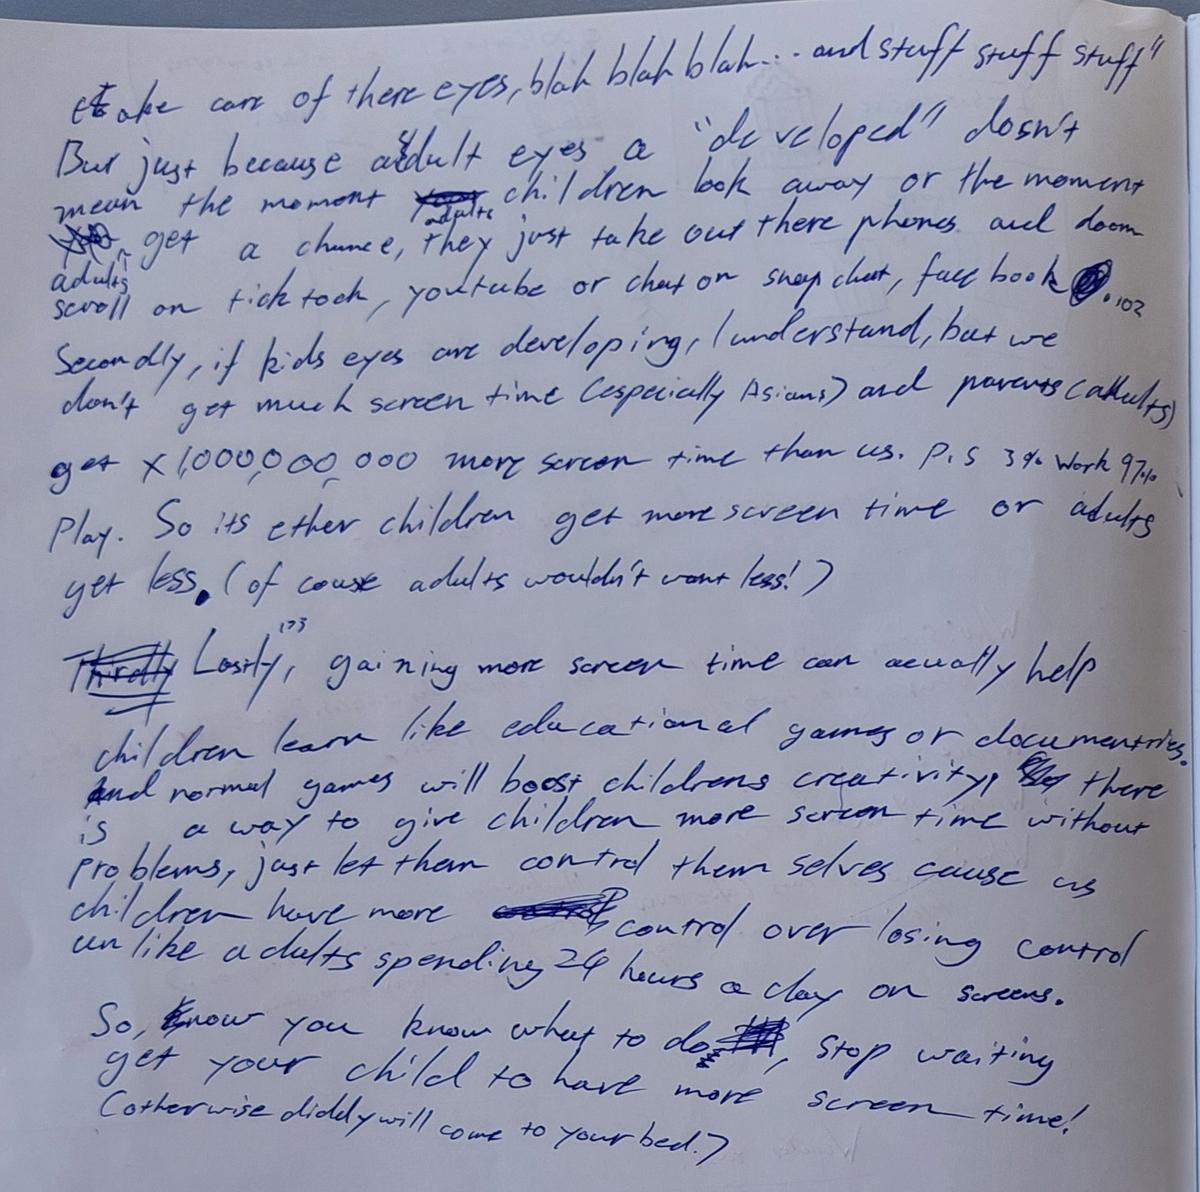 take care of there eyes, blah blah blah... and stuff stuff stuff"
But just because adult eyes a "developed" dosn't
mean the moment children look away or the moment
adults get a chance, they just take out there phones and doom
scroll on tick tock, youtube or chat on snap chat, face book. 102
Secondly, if kids eyes are developing, I understand, but we
don't get much screen time (especially Asians) and parents (adults)
get x1,000,000,000 more screen time than us. P.S 3% work 97%
Play. So its ether children get more screen time or adults
get less. (of couse adults wouldn't want less!)
Lastly, 173 gaining more screen time can acually help
children learn like educational games or documentries.
And normal games will boost childrens creativity, there
is a way to give children more screen time without
problems, just let them control them selves cause us
children have more control over losing control
un like adults spending 24 hours a day on screens.
So, now you know what to do, stop waiting
get your child to have more screen time!
(otherwise diddy will come to your bed.)